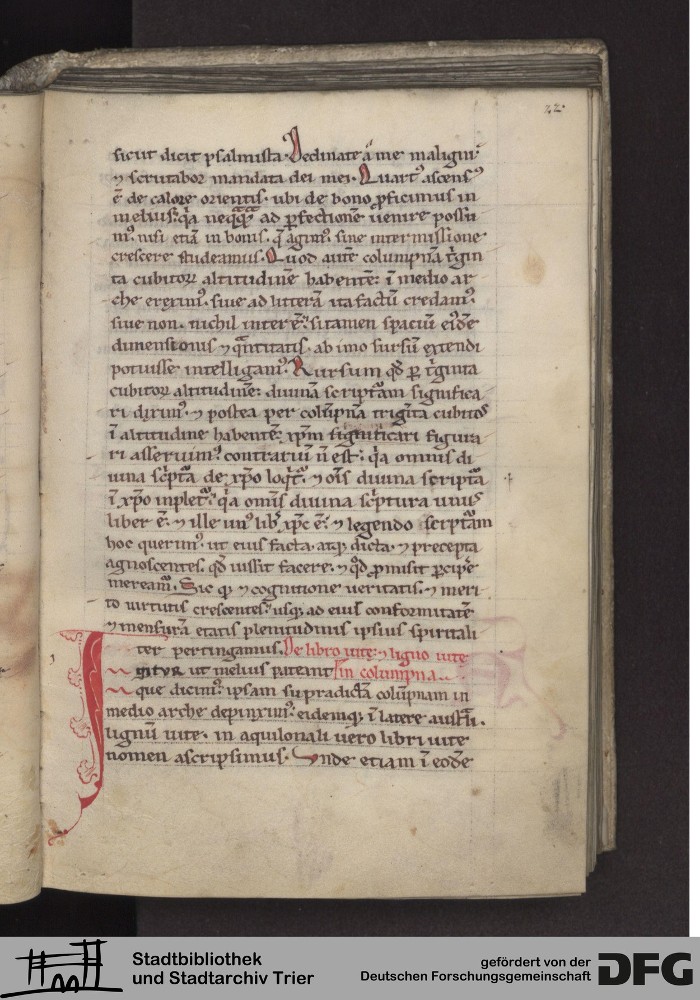 22.
sicut dicit psalmista. Declinate a me maligni
⁊ scrutabor mandata dei mei. Quart᷒ ascens᷒
ē de calore orientis. ubi de bono ꝓficimus in
melius. q̇a neq̄q̄ ad ꝑfectionē uenire possu
m᷒. nisi etiā in bonis. q̄ agim᷒. sine intermissione
crescere studeamus. Quod autē columpnā ṫgin
ta cubitoꝝ altitudinē habentē. ī medio ar
che erexim᷒. siue ad litterā ita factū credam᷒.
siue non. nichil inter ē. si tamen spaciū ei᷒dē
dimensionis ⁊ q̄ntitatis. ab imo sursū extendi
potuisse intelligam᷒. Rursum qd̄ ꝑ ṫginta
cubitoꝝ altitudinē. diuinā scriptā̄m significa
ri dixim᷒. ⁊ postea per colūpnā triġta cubitoꝝ
ī altitudine habentē. xp̄m significari figura
ri asseruim᷒. contrariū n̄ est. q̇a omnis di
uina sċpta de xp̄o loq̇t᷑. ⁊ oīs diuina scriptā
ī xp̄o inplet᷑. q̇a omīs diuina sċptura unus
liber ē. ⁊ ille un᷒ lib̄ xp̄c ē. ⁊ legendo scrptām
hoc querim᷒. ut eius facta. atq; dicta. ⁊ precepta
agnoscentes. qd̄ iussit facere. ⁊ qd̄ ꝓmisit ꝑcipe
meream᷑. Sic q; ⁊ cognitione ueritatis. ⁊ meri
to uirtutis crescentes. usq; ad eius conformitatē
⁊ mensurā etatis plenitudinis ipsius spiritali
ter pertingamus. De libro uite. ⁊ ligno uite
gitur ut melius pateant in columpna.
que dicim᷒. ipsam supradictā colūpnam in
medio arche depinxim᷒. eidemq; ī latere austli.
lignū uite. in aquilonali uero libri uite
nomen ascripsimus. Unde etiam ī eodē
Stadtbibliothek
und Stadtarchiv Trier
gefördert von der
Deutschen Forschungsgemeinschaft
DFG